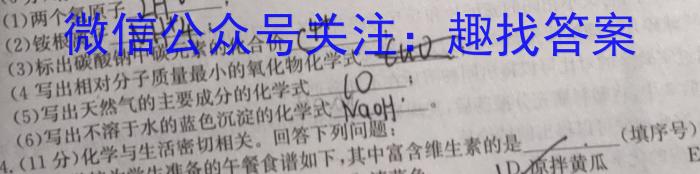 (1)两个氢原子 2H
(2)铵根
微信公众号关注：趣找答案
(3)标出碳酸钠中碳元素的化合价
(4 写出相对分子质量最小的氧化物化学式
(5)写出天然气的主要成分的化学式 CO ；
(6)写出不溶于水的蓝色沉淀的化学式 NaOH 。
4.(11 分)化学与生活密切相关。回答下列问题：
学生准备的午餐食谱如下,其中富含维生素的是 (填序号)
D 凉拌黄瓜 E